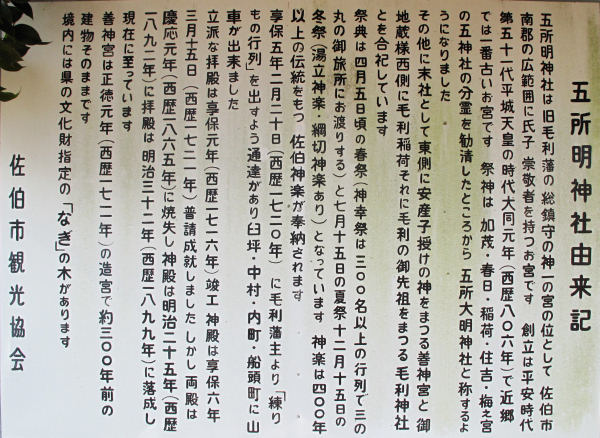 五所明神社由来記
五所明神社は旧毛利藩の 総鎮守の神一の宮の位として 佐伯市
南郡の広範囲に氏子 崇敬者を持つお宮です 創立は平安時代
第五十一代平城天皇の時代大同元年(西歴八〇六年)で近郷
では一番古いお宮です 祭神は 加茂・春日・稲荷・住吉・梅之宮
の五神社の分霊を勧清したところから 五所大明神社と称するよ
うになりました
その他に末社として東側に安産子授けの神をまつる善神宮と 御
地蔵様西側に毛利稲荷それに毛利の御先祖をまつる毛利神社
とを合祀しています
祭典は四月五日頃の春祭(神幸祭は三〇〇名以上の行列で三の
丸の御旅所にお渡りする)と七月十五日の夏祭十二月十五日の
冬祭(湯立神楽・綱切神楽あり)となっています 神楽は四〇〇年
以上の伝統をもつ 佐伯神楽が奉納されます
享保五年二月二十日(西歴一七二〇年)に毛利藩主より「練り
もの行列」を出すよう通達があり臼坪・中村・内町・船頭町に山
車が出来ました
立派な拝殿は享保元年(西歴一七二六年)竣工 神殿は享保六年
三月十五日(西歴一七二一年)普請成就しました しかし両殿は
慶応元年(西歴一八六五年)に焼失し神殿は明治二十五年(西歴
一八九二年)に拝殿は明治三十二年(西歴一八九九年)に落成し
現在に至っています
善神宮は正徳元年(西歴一七一一年)の造宮で約三〇〇年前の
建物そのままです
境内には県の文化財指定の「なぎ」の木があります
佐伯市観光協会